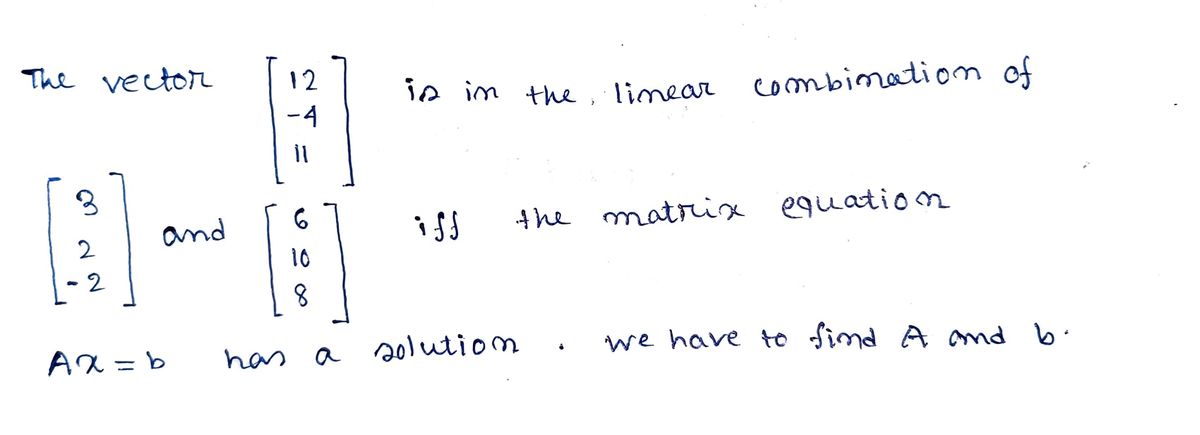 The vector [12 -4 11] is in the, linear combination of
[3 2 -2] and [6 10 8] iff the matrix equation
Ax = b has a solution. we have to find A and b.